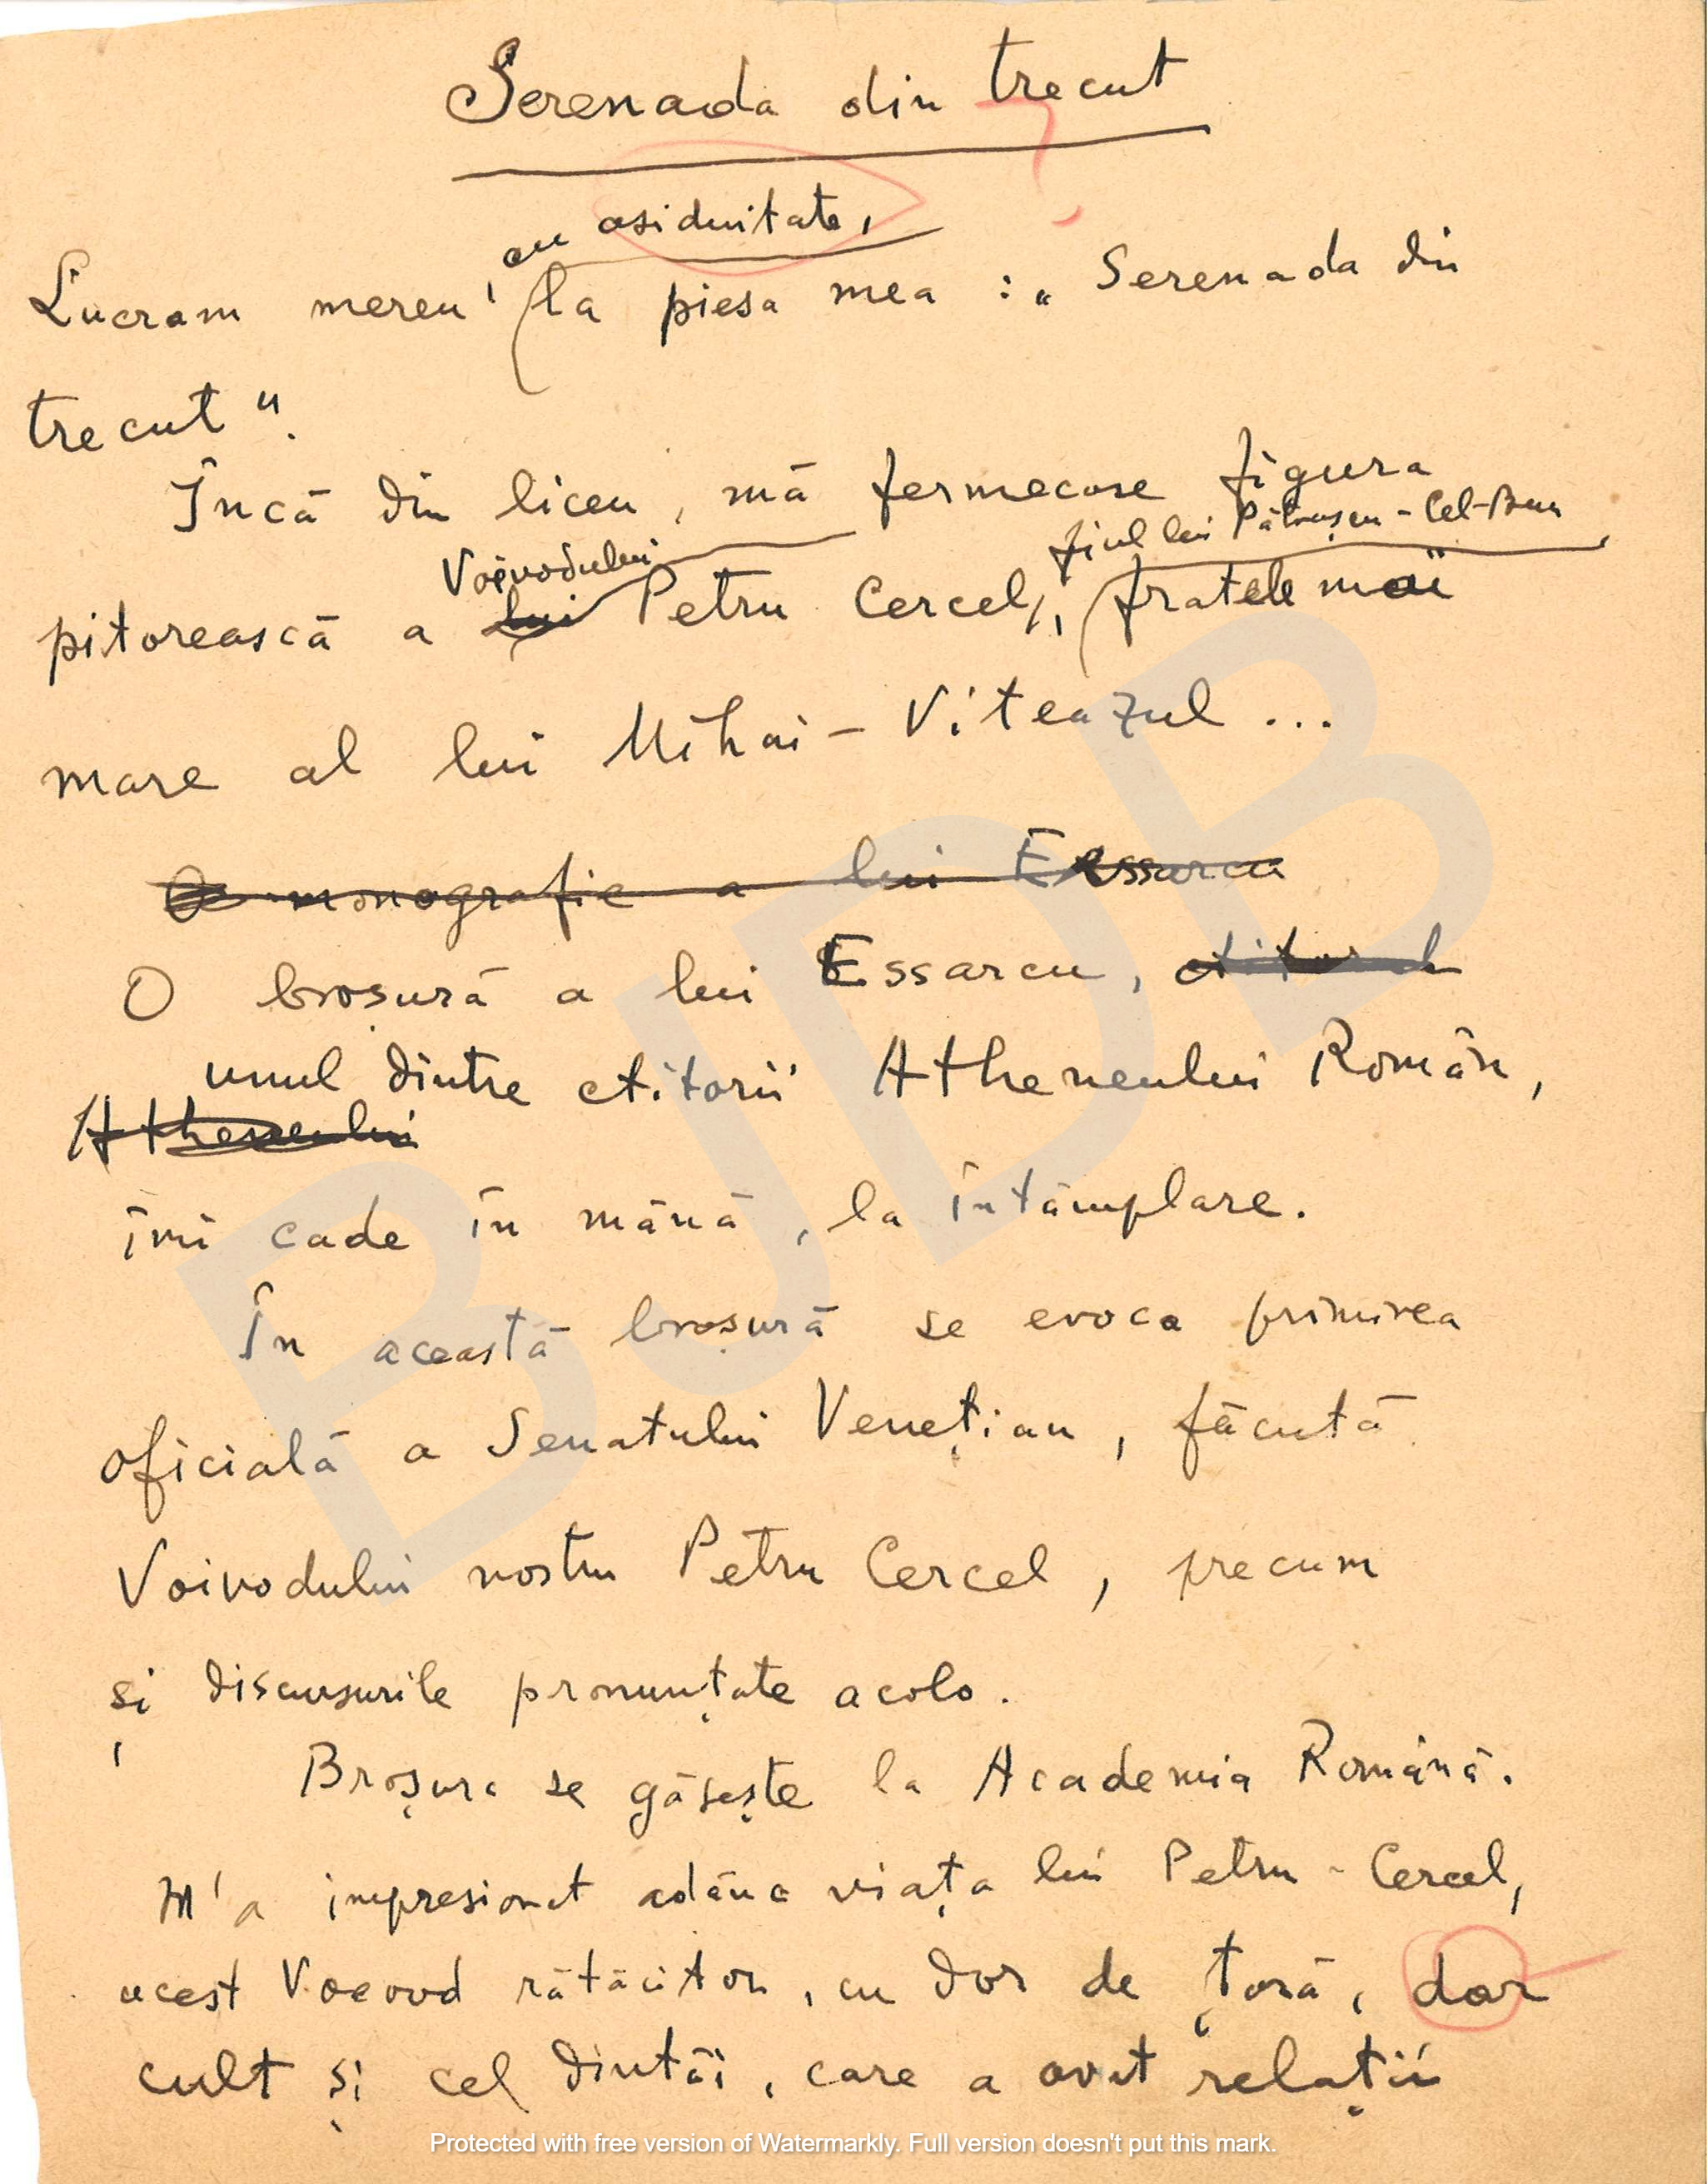 Serenada din trecut
cu asiduitate,
Lucram mereu, la piesa mea : „Serenada din
trecut".
Încă din liceu, mă fermecase figura
Voivodului fiul lui Pătrașcu-Cel-Bun,
pitorească a lui Petru Cercel, fratele mai
mare al lui Mihai-Viteazul...
O monografie a lui Essarcu
O broșură a lui Essarcu, ctitorul
unul dintre ctitorii Atheneului Român,
Atheneului
îmi cade în mână, la întâmplare.
În această broșură se evoca primirea
oficială a Senatului Venețian, făcută
Voivodului nostru Petru Cercel, precum
și discursurile pronunțate acolo.
Broșura se găsește la Academia Română.
M'a impresionat adânc viața lui Petru-Cercel,
acest Voevod rătăcitor, cu dor de țară, dar
cult și cel dintâi, care a avut relații
BJDB
Protected with free version of Watermarkly. Full version doesn't put this mark.